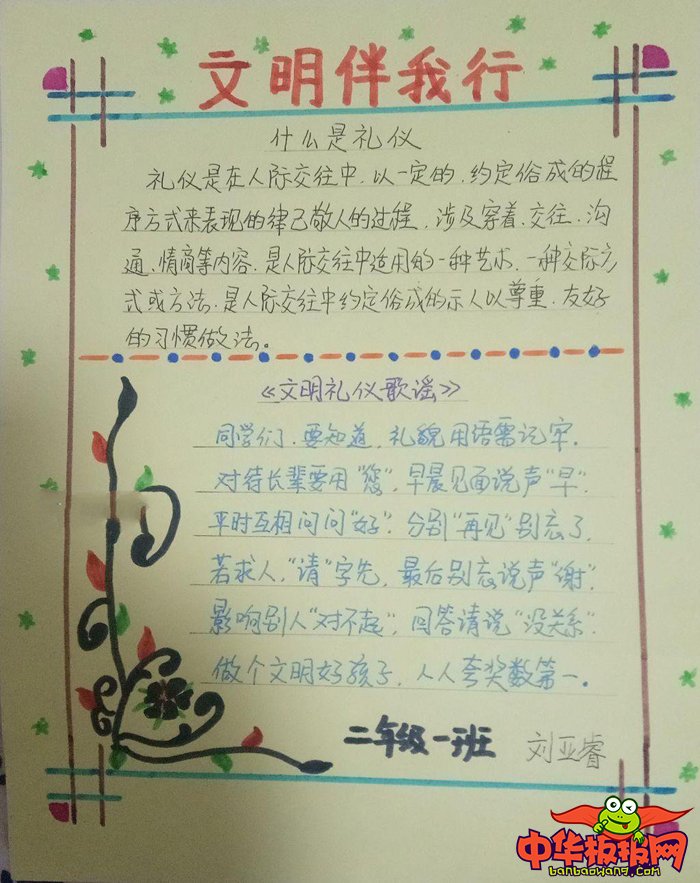 文明伴我行
什么是礼仪
礼仪是在人际交往中，以一定的，约定俗成的程
序方式来表现的律己敬人的过程，涉及穿着、交往、沟
通、情商等内容，是人际交往中适用的一种艺术，一种交际方
式或方法，是人际交往中约定俗成的示人以尊重、友好
的习惯做法。
《文明礼仪歌谣》
同学们，要知道，礼貌用语需记牢。
对待长辈要用“您”，早晨见面说声“早”，
平时互相问问“好”，分别“再见”别忘了，
若求人，“请”字先，最后别忘说声“谢”，
影响别人“对不起”，回答请说“没关系”，
做个文明好孩子，人人夸奖数第一。
二年级一班 刘亚睿
中华板报网
banbaowang.com